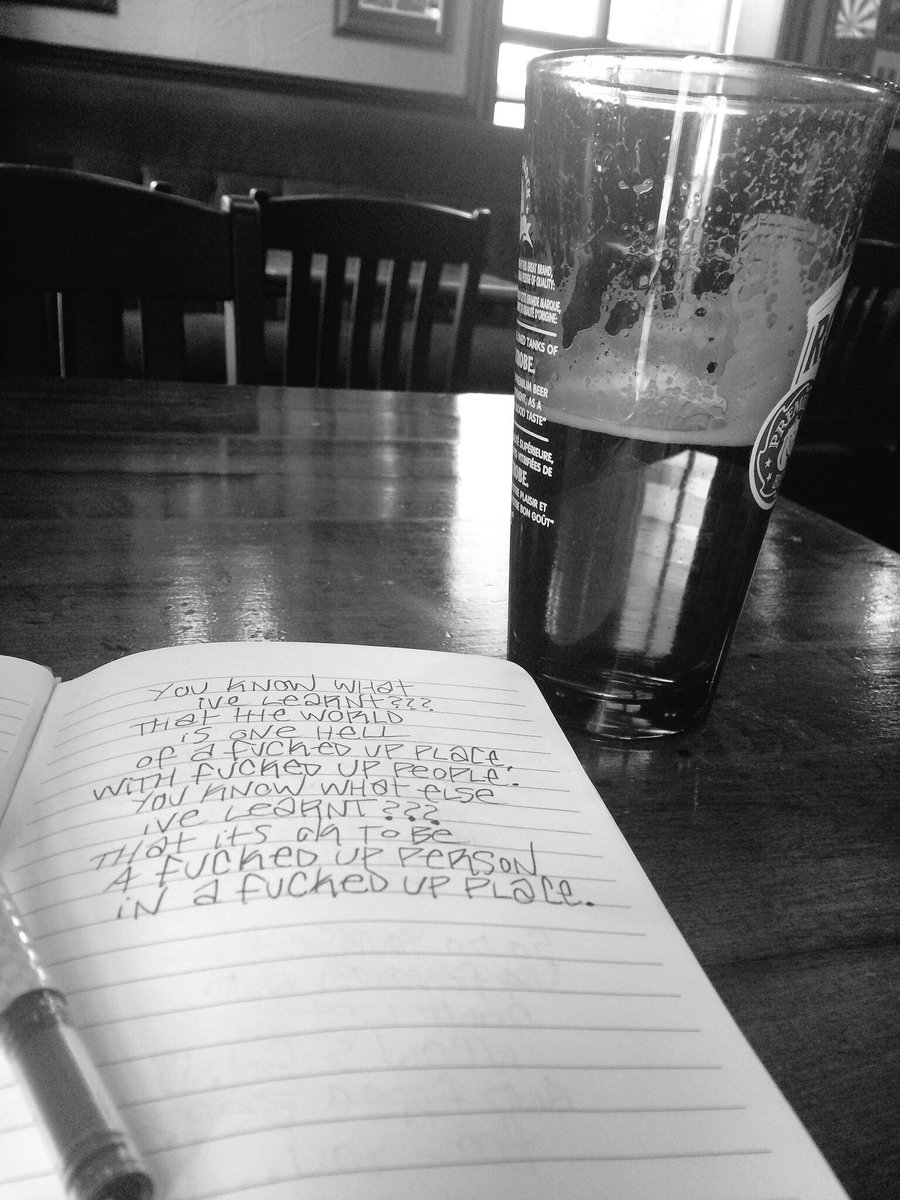 YOU KNOW WHAT
IVE LEARNT???
THAT THE WORLD
IS ONE HELL
OF A FUCKED UP PLACE,
WITH FUCKED UP PEOPLE.
YOU KNOW WHAT ELSE
IVE LEARNT???
THAT ITS OK TO BE
A FUCKED UP PERSON
IN A FUCKED UP PLACE.
GREAT BRAND,
OF QUALITY:
GRANDE MARQUE,
D'ORIGINE:
TANKS OF
BEER
AS A
GOOD TASTE"
SUPÉRIEURE,
VITRIFIÉES DE
PLAISIR ET
BON GOÛT"
R
PREMI